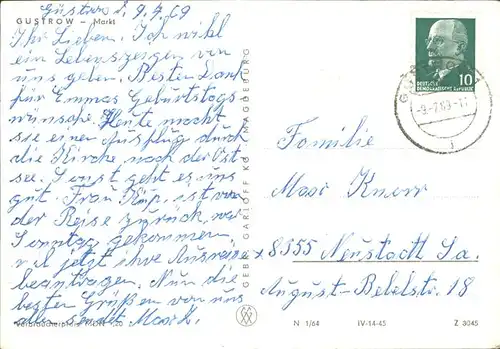 Güstrow d. 9.7.69
GÜSTROW – Markt
Ihr Lieben. Ich will
ein Lebenszeichen von
uns geben. Besten Dank
für Emmas Geburtstags
wünsche. Heute macht
sie einen Ausflug durch
die Kirche, nach der Ost
see. Sonst geht es uns
gut. Frau ist von
der Reise zurück, war
Sonntag gekommen
u. jetzt ihre Ausreise
beantragen. Nun die
besten Grüße von uns
allen sendet
Verbraucherpreis MDN -,20
GEBR. GARLOFF KG MAGDEBURG
10
DEUTSCHE
DEMOKRATISCHE REPUBLIK
-9.7.69-11
Familie
Max Knorr
8355 Neustadt Sa.
August-Bebelstr. 18
N 1/64 IV-14-45 Z 3045